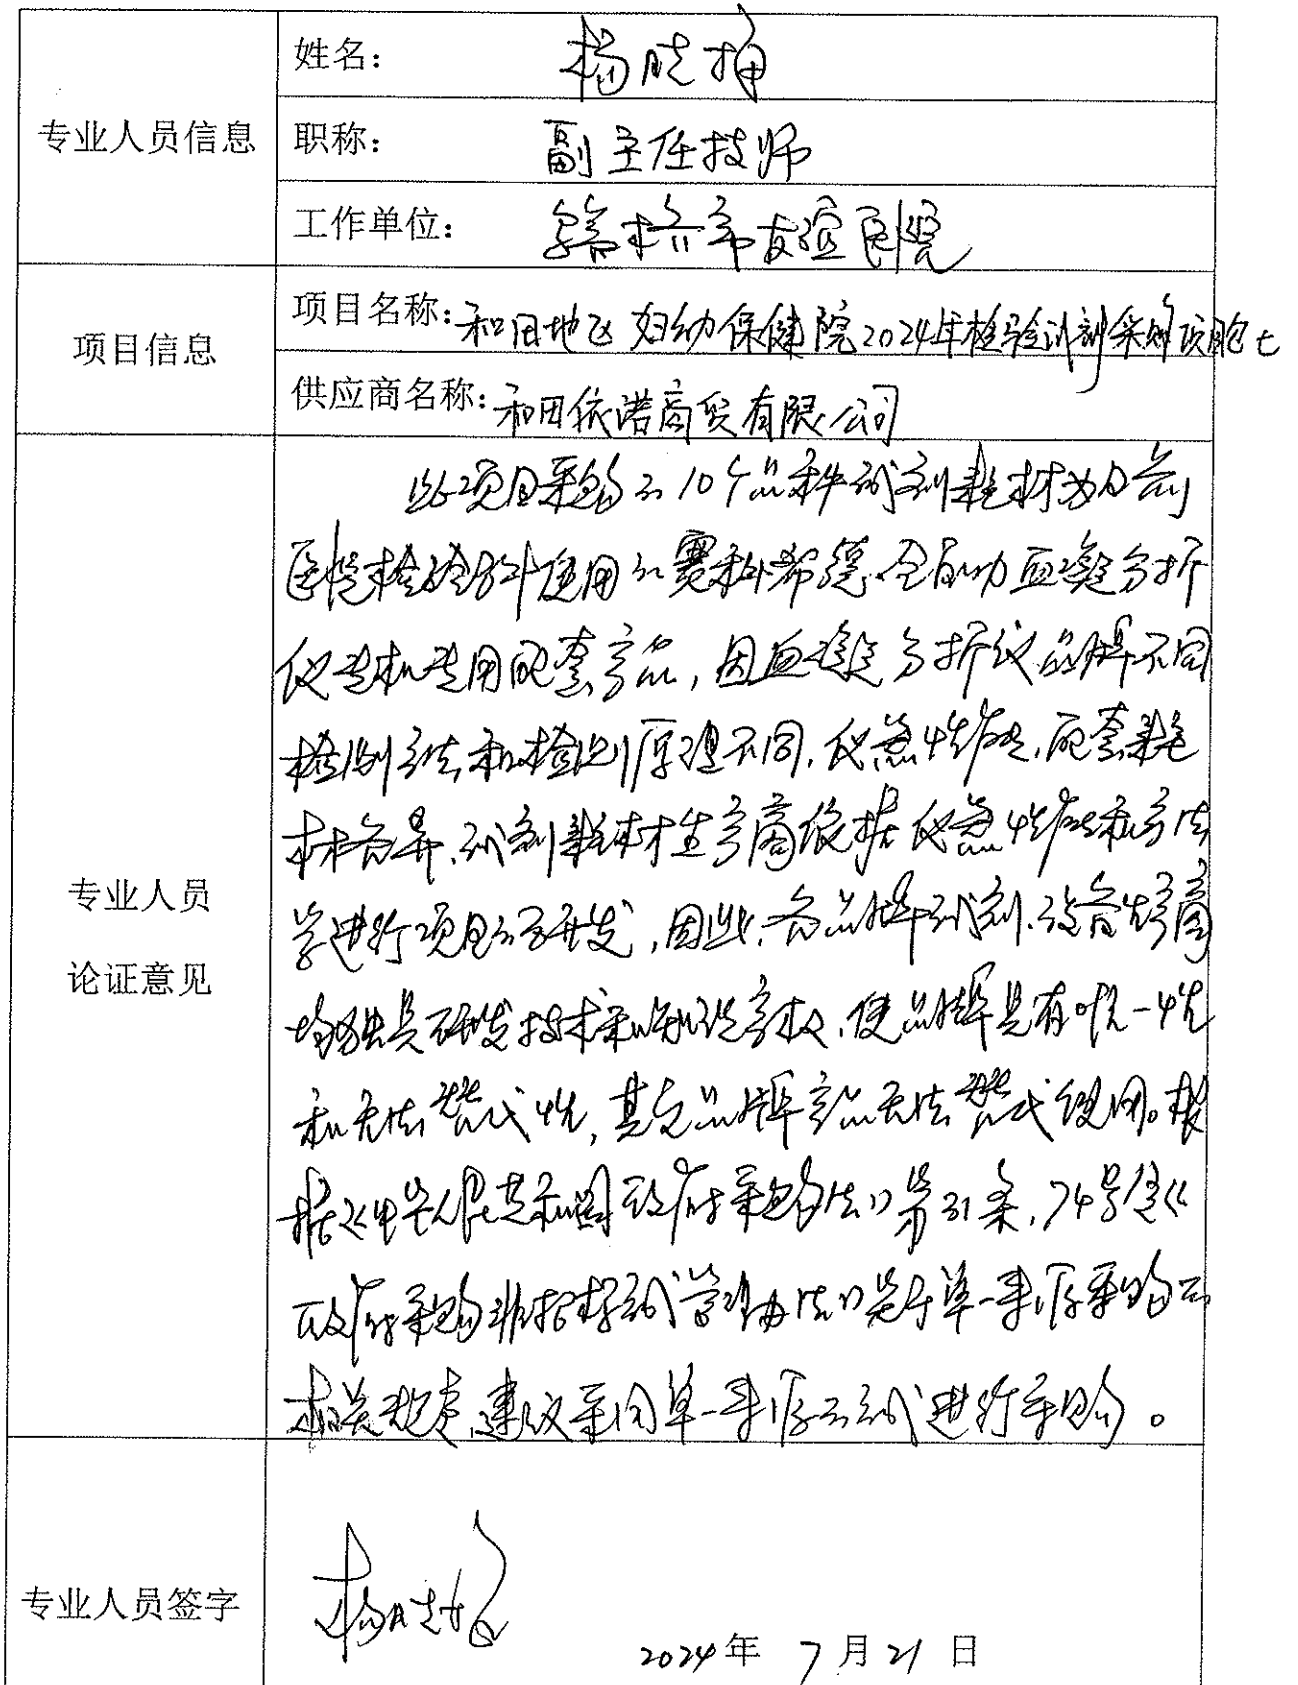 专业人员信息
姓名：杨晓梅
职称：副主任技师
工作单位：市友谊医院
项目信息
项目名称：和田地区妇幼保健院2024年检验试剂采购项目包七
供应商名称：和田依诺商贸有限公司
专业人员
论证意见
此项目采购的10个品种试剂耗材为目前
医院检验科使用的赛科希德全自动血凝分析
仪专机专用配套产品，因血凝分析仪品牌不同
检测方法和检测原理不同，仪器性能，配套耗
材各异，试剂耗材生产商依据仪器性能和方法
学进行项目的研发，因此，各品牌试剂、设备生产商
均独具研发技术和知识产权，使品牌具有唯一性
和无法替代性，其它品牌产品无法替代使用。根
据《中华人民共和国政府采购法》第31条，74号令《
政府采购非招标方式管理办法》关于单一来源采购的
相关规定，建议采用单一来源的方式进行采购。
专业人员签字
杨晓梅
2024年7月21日